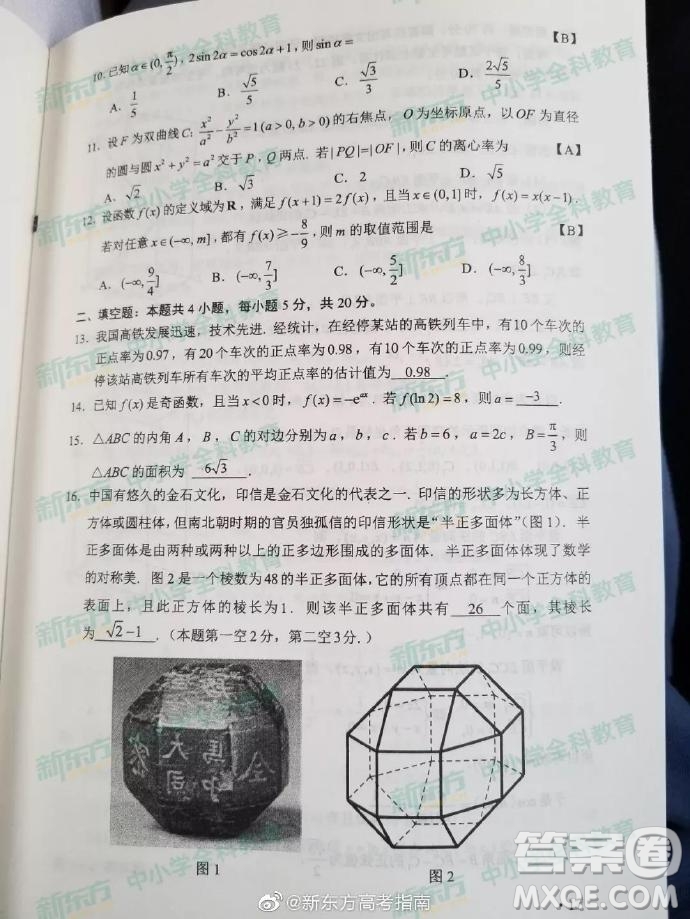 10. 已知 α∈(0, π/2), 2sin2α=cos2α+1, 则 sinα= 【B】
A. 1/5 B. √5/5 C. √3/3 D. 2√5/5
11. 设 F 为双曲线 C: x²/a² - y²/b² =1(a>0, b>0) 的右焦点, O 为坐标原点, 以 OF 为直径
的圆与圆 x²+y²=a² 交于 P, Q 两点. 若 |PQ|=|OF|, 则 C 的离心率为 【A】
A. √2 B. √3 C. 2 D. √5
12. 设函数 f(x) 的定义域为 R, 满足 f(x+1)=2f(x), 且当 x∈(0,1] 时, f(x)=x(x-1).
若对任意 x∈(-∞, m], 都有 f(x)≥-8/9, 则 m 的取值范围是 【B】
A. (-∞, 9/4] B. (-∞, 7/3] C. (-∞, 5/2] D. (-∞, 8/3]
二、填空题: 本题共 4 小题, 每小题 5 分, 共 20 分。
13. 我国高铁发展迅速, 技术先进. 经统计, 在经停某站的高铁列车中, 有10个车次的
正点率为0.97, 有20个车次的正点率为0.98, 有10个车次的正点率为0.99, 则经
停该站高铁列车所有车次的平均正点率的估计值为 0.98 .
14. 已知 f(x) 是奇函数, 且当 x<0 时, f(x)=-e^{ax}. 若 f(ln2)=8, 则 a= -3 .
15. △ABC 的内角 A, B, C 的对边分别为 a, b, c. 若 b=6, a=2c, B=π/3, 则
△ABC 的面积为 6√3 .
16. 中国有悠久的金石文化, 印信是金石文化的代表之一. 印信的形状多为长方体、正
方体或圆柱体, 但南北朝时期的官员独孤信的印信形状是“半正多面体”(图1). 半
正多面体是由两种或两种以上的正多边形围成的多面体. 半正多面体体现了数学
的对称美. 图2是一个棱数为48的半正多面体, 它的所有顶点都在同一个正方体的
表面上, 且此正方体的棱长为1. 则该半正多面体共有 26 个面, 其棱长
为 √2-1 . (本题第一空2分, 第二空3分.)
图1
图2
新东方 中小学全科教育
@新东方高考指南
答案圈
MXQE.COM